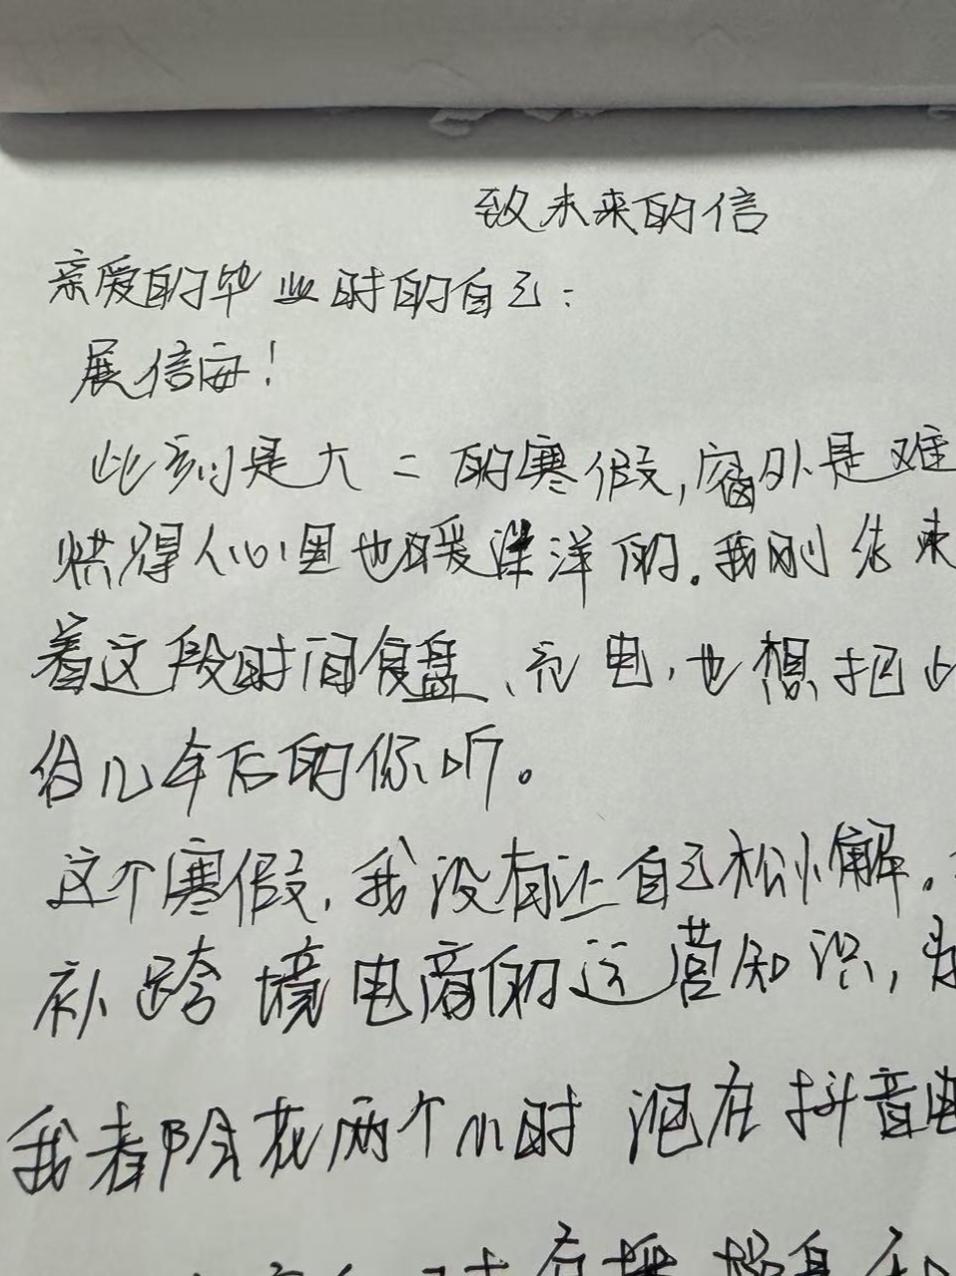 致未来的信
亲爱的毕业时的自己：
展信安！
此刻是大二的寒假，窗外是难
烘得人心里也暖洋洋的。我刚结束
着这段时间复盘、充电，也想把此
给几年后的你听。
这个寒假，我没有让自己松懈。
补跨境电商的运营知识，
我都会花两个小时泡在抖音电